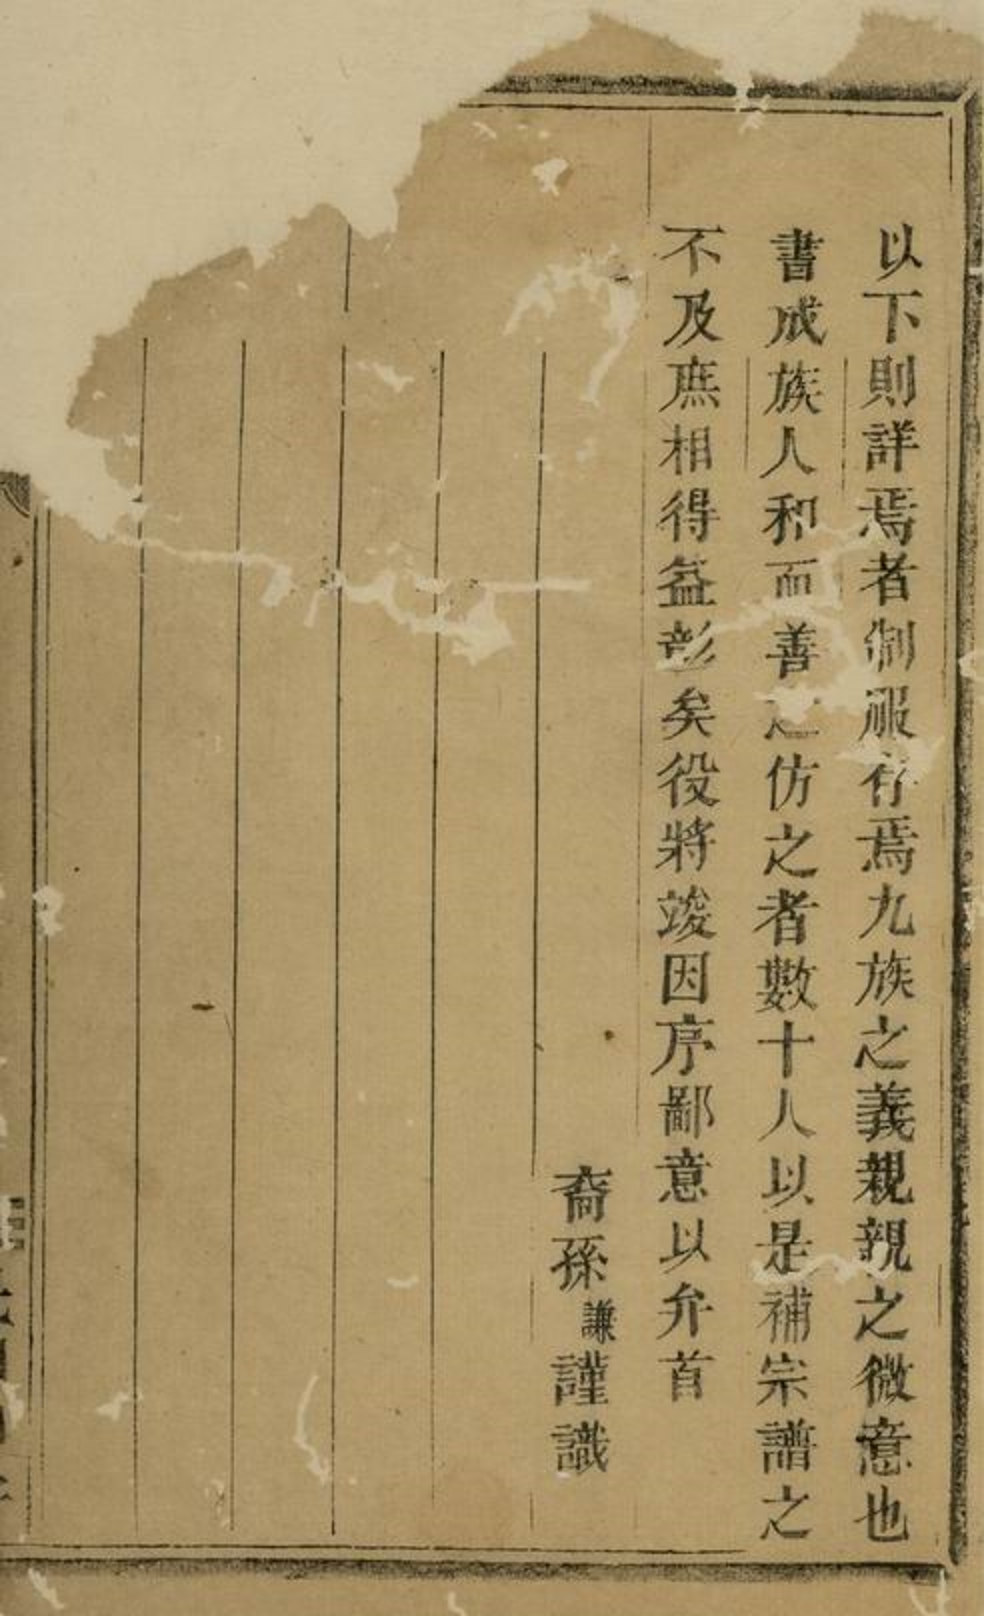 以下則詳焉者制服存焉九族之義親親之微意也
書成族人和而善之仿之者數十人以是補宗譜之
不及庶相得益彰矣役將竣因序鄙意以弁首
裔孫謙謹識